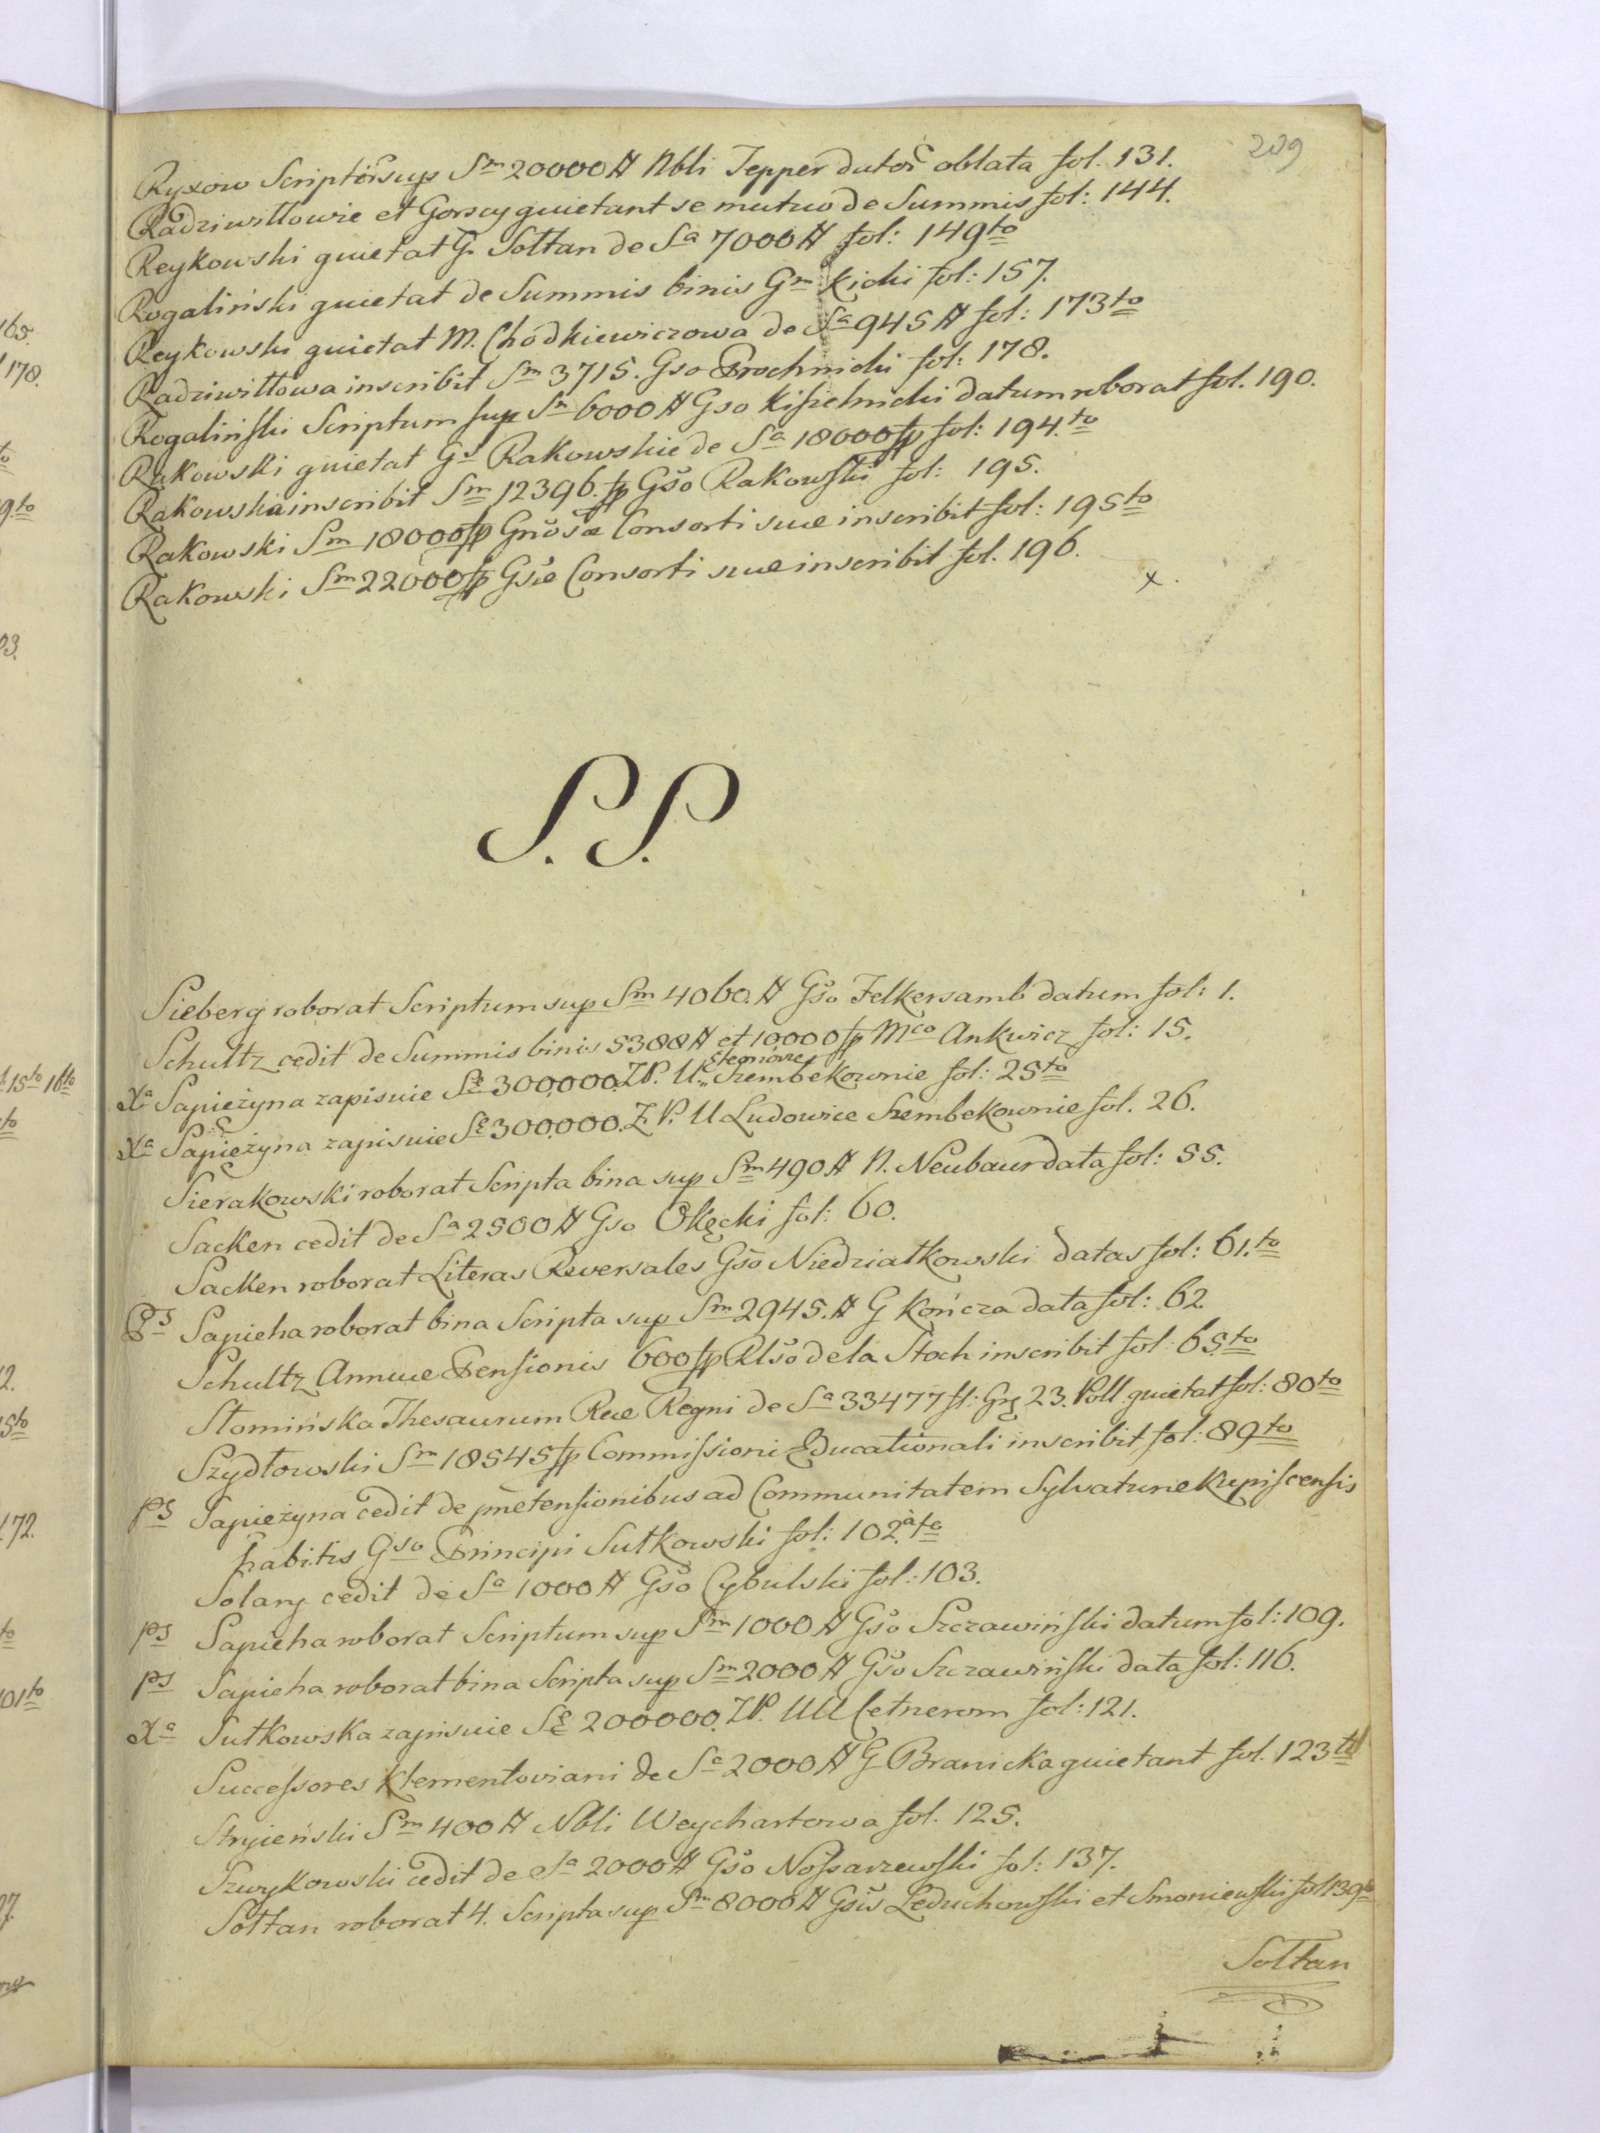 209
Ryxow Scriptor sup Sm 20000 # Nbli Tepper dator oblata fol. 131.
Radziwiłłowie et Gorscy quietant se mutuo de Summis fol: 144.
Reykowski quietat G. Sołtan de Sa 7000 # fol: 149to
Rogaliński quietat de Summis binis Gm Kicki fol: 157.
Reykowski quietat M. Chodkiewiczowa de Sa 945 # fol: 173to
Radziwiłłowa inscribit Sm 3715. Gso Prochnicki fol: 178.
Rogaliński Scriptum sup Sm 6000 # Gso Kisielnicki datum roborat fol. 190.
Rakowski quietat Gs Rakowskie de Sa 18000 fp fol: 194.to
Rakowska inscribit Sm 12396. fp Gso Rakowski fol: 195.
Rakowski Sm 18000 fp Gnosæ Consorti suæ inscribit fol: 195to
Rakowski Sm 22000 fp Gsæ Consorti suæ inscribit fol. 196.
x.
S. S.
Sieberg roborat Scriptum sup Sm 4060. # Gso Felkersamb datum fol: 1.
Schultz cedit de Summis binis 5388 # et 10000 fp Mco Ankwicz fol: 15.
Xa Sapieżyna zapisuie Sę 300,000. ZP. U. Eleonorze Szembekownie fol: 25to
Xa Sapieżyna zapisuie Sę 300,000. Z P. U Ludowice Szembekownie fol. 26.
Sierakowski roborat Scripta bina sup Sm 490 # N. Neubaur data fol: 55.
Sacken cedit de Sa 2500 # Gso Okęcki fol: 60.
Sacken roborat Literas Reversales Gso Niedziałkowski datas fol: 61.to
Ps Sapieha roborat bina Scripta sup Sm 2945. # G Kończa data fol: 62.
Schultz Annuæ Pensionis 600 fp Rlso de la Stoch inscribit fol: 65.to
Słomińska Thesaurum Reæ Regni de Sa 33477 fl: Grs 23. Poll. quietat fol: 80to
Szydłowski Sm 18545 fp Commissioni Educationali inscribit fol: 89to
Ps Sapieżyna cedit de prætensionibus ad Communitatem Sylvaturæ Kupiscensis
habitis Gso Principi Sułkowski fol: 102.to
Solary cedit de Sa 1000 # Gso Cybulski fol: 103.
Ps Sapieha roborat Scriptum sup Sm 1000 # Gso Szczawiński datum fol: 109.
Ps Sapieha roborat bina Scripta sup Sm 2000 # Gso Szczawiński data fol: 116.
Xa Sułkowska zapisuie Sę 200000. ZP. UU Cetnerom fol: 121.
Successores Klementoviani de Sa 2000 # G Branicka quietant fol. 123to
Stryieński Sm 400 # Nbli Weychartowa fol. 125.
Szwykowski cedit de Sa 2000 # Gso Nossarzewski fol: 137.
Sołtan roborat 4. Scripta sup Sm 8000 # Gsis Leduchowski et Smoniewski fol 139to
Sołtan